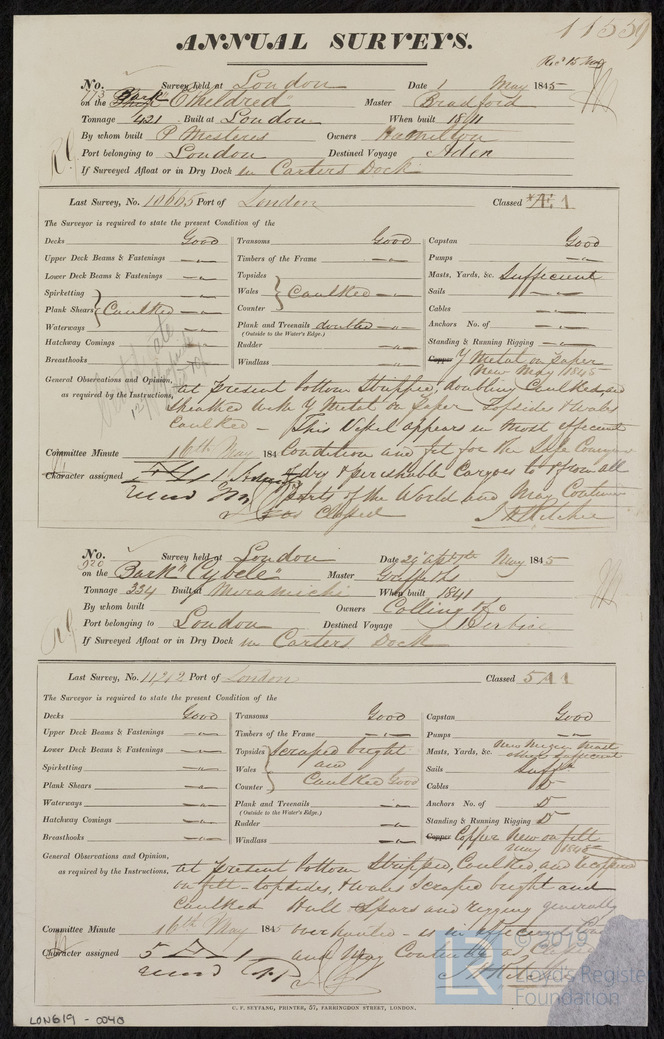 11559
ANNUAL SURVEYS.
No. 773 Survey held at London Date 1 May 1845
on the Bark "Etheldred" Master Bradford
Tonnage 421 Built at London When built 1841
By whom built P Mestires Owners Hamilton
Port belonging to London Destined Voyage Aden
If Surveyed Afloat or in Dry Dock in Carters Dock
Last Survey, No. 10605 Port of London Classed Æ 1
The Surveyor is required to state the present Condition of the
Decks Good Transoms Good Capstan Good
Upper Deck Beams & Fastenings Timbers of the Frame Pumps
Lower Deck Beams & Fastenings Topsides Masts, Yards, &c. Sufficient
Spirketting Wales Caulked Sails
Plank Shears Caulked Counter Cables
Waterways Plank and Treenails doubled Anchors No. of
(Outside to the Water's Edge.)
Hatchway Comings Rudder Standing & Running Rigging
Breasthooks Windlass Copper Y Metal on Paper
New May 1845
General Observations and Opinion, at present bottom Stripped, doubling Caulked, and
as required by the Instructions, sheathed with Y Metal on Paper Topsides & Wales
Caulked - This Vessel appears in most efficient
Committee Minute 16th May 184 Condition and fit for the Safe Conveyance
Character assigned of dry & perishable Cargoes to & from all
parts of the World and May Continue
as Classed
No. 920 Survey held at London Date 29 Apl & 7th May 1845
on the Bark "Cybele" Master Griffiths
Tonnage 334 Built at Miramichi When built 1841
By whom built Owners Colling & Co
Port belonging to London Destined Voyage Berbice
If Surveyed Afloat or in Dry Dock in Carters Dock
Last Survey, No. 11212 Port of London Classed 5 A 1
The Surveyor is required to state the present Condition of the
Decks Good Transoms Good Capstan Good
Upper Deck Beams & Fastenings Timbers of the Frame Pumps
Lower Deck Beams & Fastenings Topsides scraped bright Masts, Yards, &c. New Mizen Mast
Spirketting Wales and Sails Suff.t
Plank Shears Counter Caulked Good Cables D
Waterways Plank and Treenails Anchors No. of D
(Outside to the Water's Edge.)
Hatchway Comings Rudder Standing & Running Rigging D
Breasthooks Windlass Copper Copper New on felt
May 1845
General Observations and Opinion, at present bottom Stripped, Caulked, and Coppered
as required by the Instructions, on felt - topsides, & Wales Scraped bright and
Caulked Hull Spars and rigging generally
Committee Minute 16th May 1845 overhauled - is in efficient
Character assigned 5 A 1 and May Continue as Classed
C. F. SEYFANG, PRINTER, 57, FARRINGDON STREET, LONDON.
LON619 - 0040
© 2019
LR Lloyd's Register
Foundation